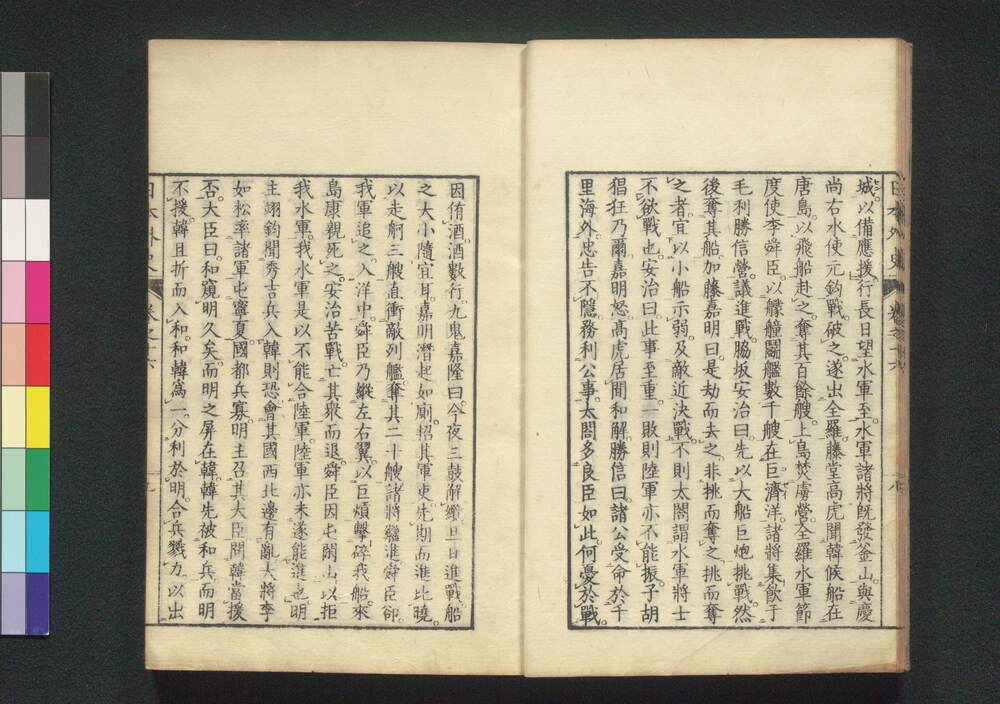 城以備應援行長日望水軍至水軍諸將既發釜山與慶
尚右水使元鈞戰破之遂出全羅藤堂高虎聞韓候船在
唐島以飛船赴之奪其百餘艘上島焚虜營全羅水軍節
度使李舜臣以艨艟鬭艦數千艘在巨濟洋諸將集飲于
毛利勝信營議進戰脇坂安治曰先以大船巨炮挑戰然
後奪其船加藤嘉明曰是劫而去之非挑而奪之挑而奪
之者宜以小船示弱及敵近決戰不則太閤謂水軍將士
不欲戰也安治曰此事至重一敗則陸軍亦不能振子胡
猖狂乃爾嘉明怒高虎居間和解勝信曰諸公受命於千
里海外忠告不隱務利公事太閤多良臣如此何憂於戰
日本外史 卷之十六
因侑酒酒數行九鬼嘉隆曰今夜三鼓解纜旦日進戰船
之大小隨宜耳嘉明潛起如廁招其軍吏先期而進比曉
以走舸三艘直衝敵列艦奪其二十艘諸將繼進舜臣卻
我軍追之入洋中舜臣乃縱左右翼以巨熕擊碎我船來
島康親死之安治苦戰亡其衆而退舜臣因屯閑山以拒
我水軍我水軍是以不能合陸軍陸軍亦未遂能進也明
主翊鈞聞秀吉兵入韓則恐會其國西北邊有亂大將李
如松率諸軍屯寧夏國都兵寡明主召其大臣問韓當援
否大臣曰和窺明久矣而明之屏在韓韓先被和兵而明
不援韓且折而入和和韓爲一分利於明合兵戮力以出
日本外史 卷之十六